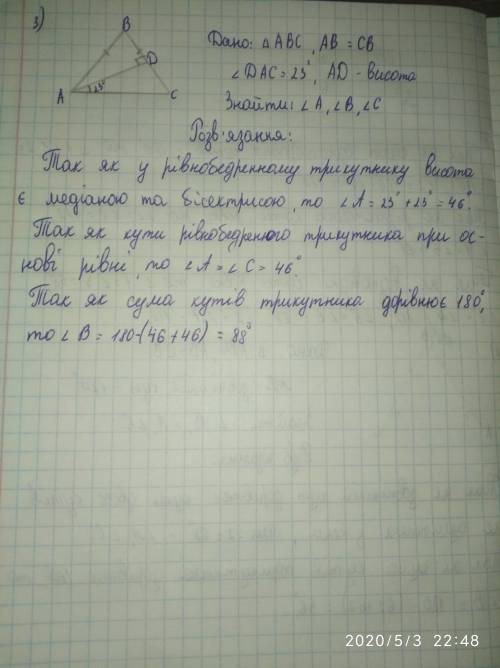 3)
B
D
A
23°
C
Дано: △ABC, AB = CB
∠DAC = 23°, AD - висота
Знайти: ∠A, ∠B, ∠C
Розв'язання:
Так як у рівнобедренному трикутнику висота
є медіаною та бісектрисою, то ∠A = 23° + 23° = 46°.
Так як кути рівнобедренного трикутника при ос-
нові рівні, то ∠A = ∠C = 46°.
Так як сума кутів трикутника дорівнює 180°,
то ∠B = 180-(46+46°) = 88°
2020/5/3 22:48